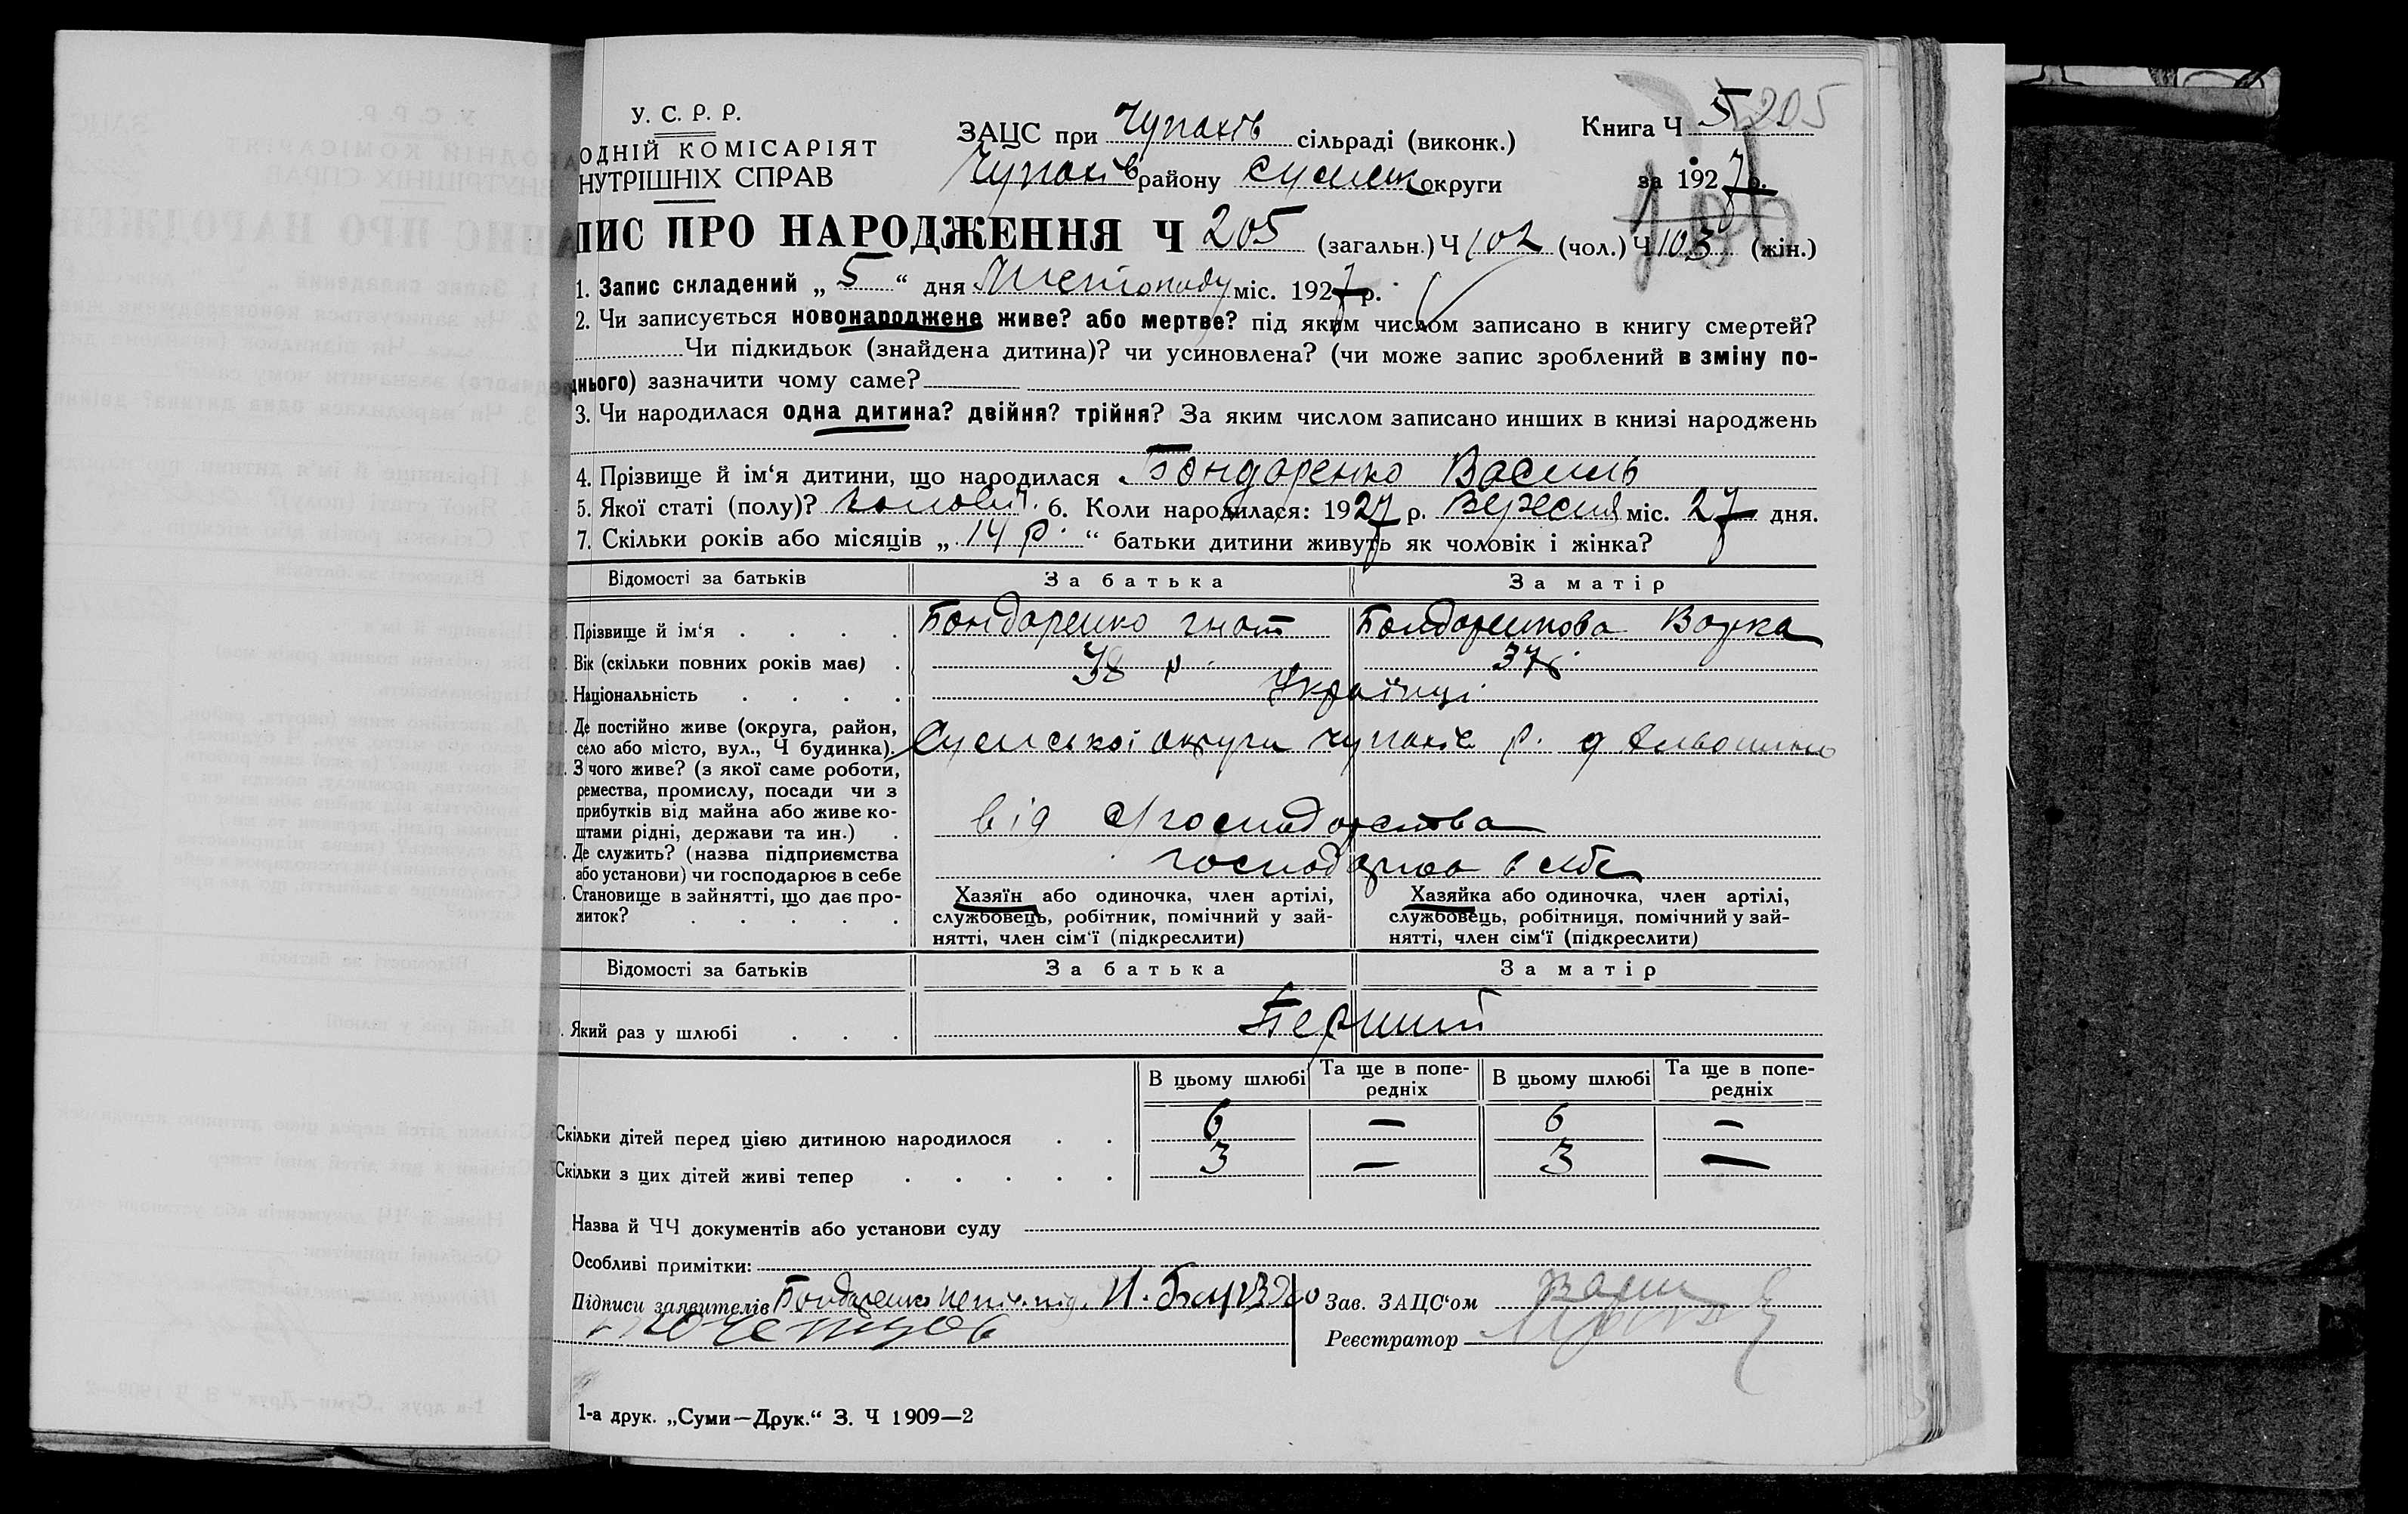 У. С. Р. Р.
ОДНІЙ КОМІСАРІЯТ
НУТРІШНІХ СПРАВ
ЗАЦС при Чупахів сільраді (виконк.)
Чупахів району Сумськ округи
Книга Ч 5 205
за 1927 р.
ПИС ПРО НАРОДЖЕННЯ Ч 205 (загальн.) Ч 102 (чол.) Ч 103 (жін.)
1. Запис складений „ 5 “ дня Листопаду міс. 1927 р.
2. Чи записується новонароджене живе? або мертве? під яким числом записано в книгу смертей?
Чи підкидьок (знайдена дитина)? чи усиновлена? (чи може запис зроблений в зміну по-
днього) зазначити чому саме?
3. Чи народилася одна дитина? двійня? трійня? За яким числом записано инших в книзі народжень
4. Прізвище й ім‘я дитини, що народилася Бондаренко Василь
5. Якої статі (полу)? чоловіч. 6. Коли народилася: 1927 р. Вересня міс. 27 дня.
7. Скільки років або місяців „ 14 р. “ батьки дитини живуть як чоловік і жінка?
Відомості за батьків За батька За матір
Прізвище й ім‘я . . . . Бондаренко Гнат Бондаренкова Варка
Вік (скільки повних років має) . 38 р. 37 р.
Національність . . . . Українці
Де постійно живе (округа, район,
село або місто, вул., Ч будинка). Сумської округи Чупахів р.
З чого живе? (з якої саме роботи,
ремества, промислу, посади чи з
прибутків від майна або живе ко-
штами рідні, держави та ин.) . від с/господарства
Де служить? (назва підприємства
або установи) чи господарює в себе господарює в себе
Становище в зайнятті, що дає про-
житок? . . . . .
Хазяїн або одиночка, член артілі,
службовець, робітник, помічний у зай-
нятті, член сім‘ї (підкреслити)
Хазяйка або одиночка, член артілі,
службовець, робітниця, помічний у зай-
нятті, член сім‘ї (підкреслити)
Відомості за батьків За батька За матір
Який раз у шлюбі . . . Перший
В цьому шлюбі Та ще в попе-редніх В цьому шлюбі Та ще в попе-редніх
Скільки дітей перед цією дитиною народилося . . 6 — 6 —
Скільки з цих дітей живі тепер . . . . . 3 — 3 —
Назва й ЧЧ документів або установи суду
Особливі примітки:
Підписи заявителів Бондаренко
Зав. ЗАЦС‘ом
Реєстратор
1-а друк. „Суми—Друк.“ З. Ч 1909—2